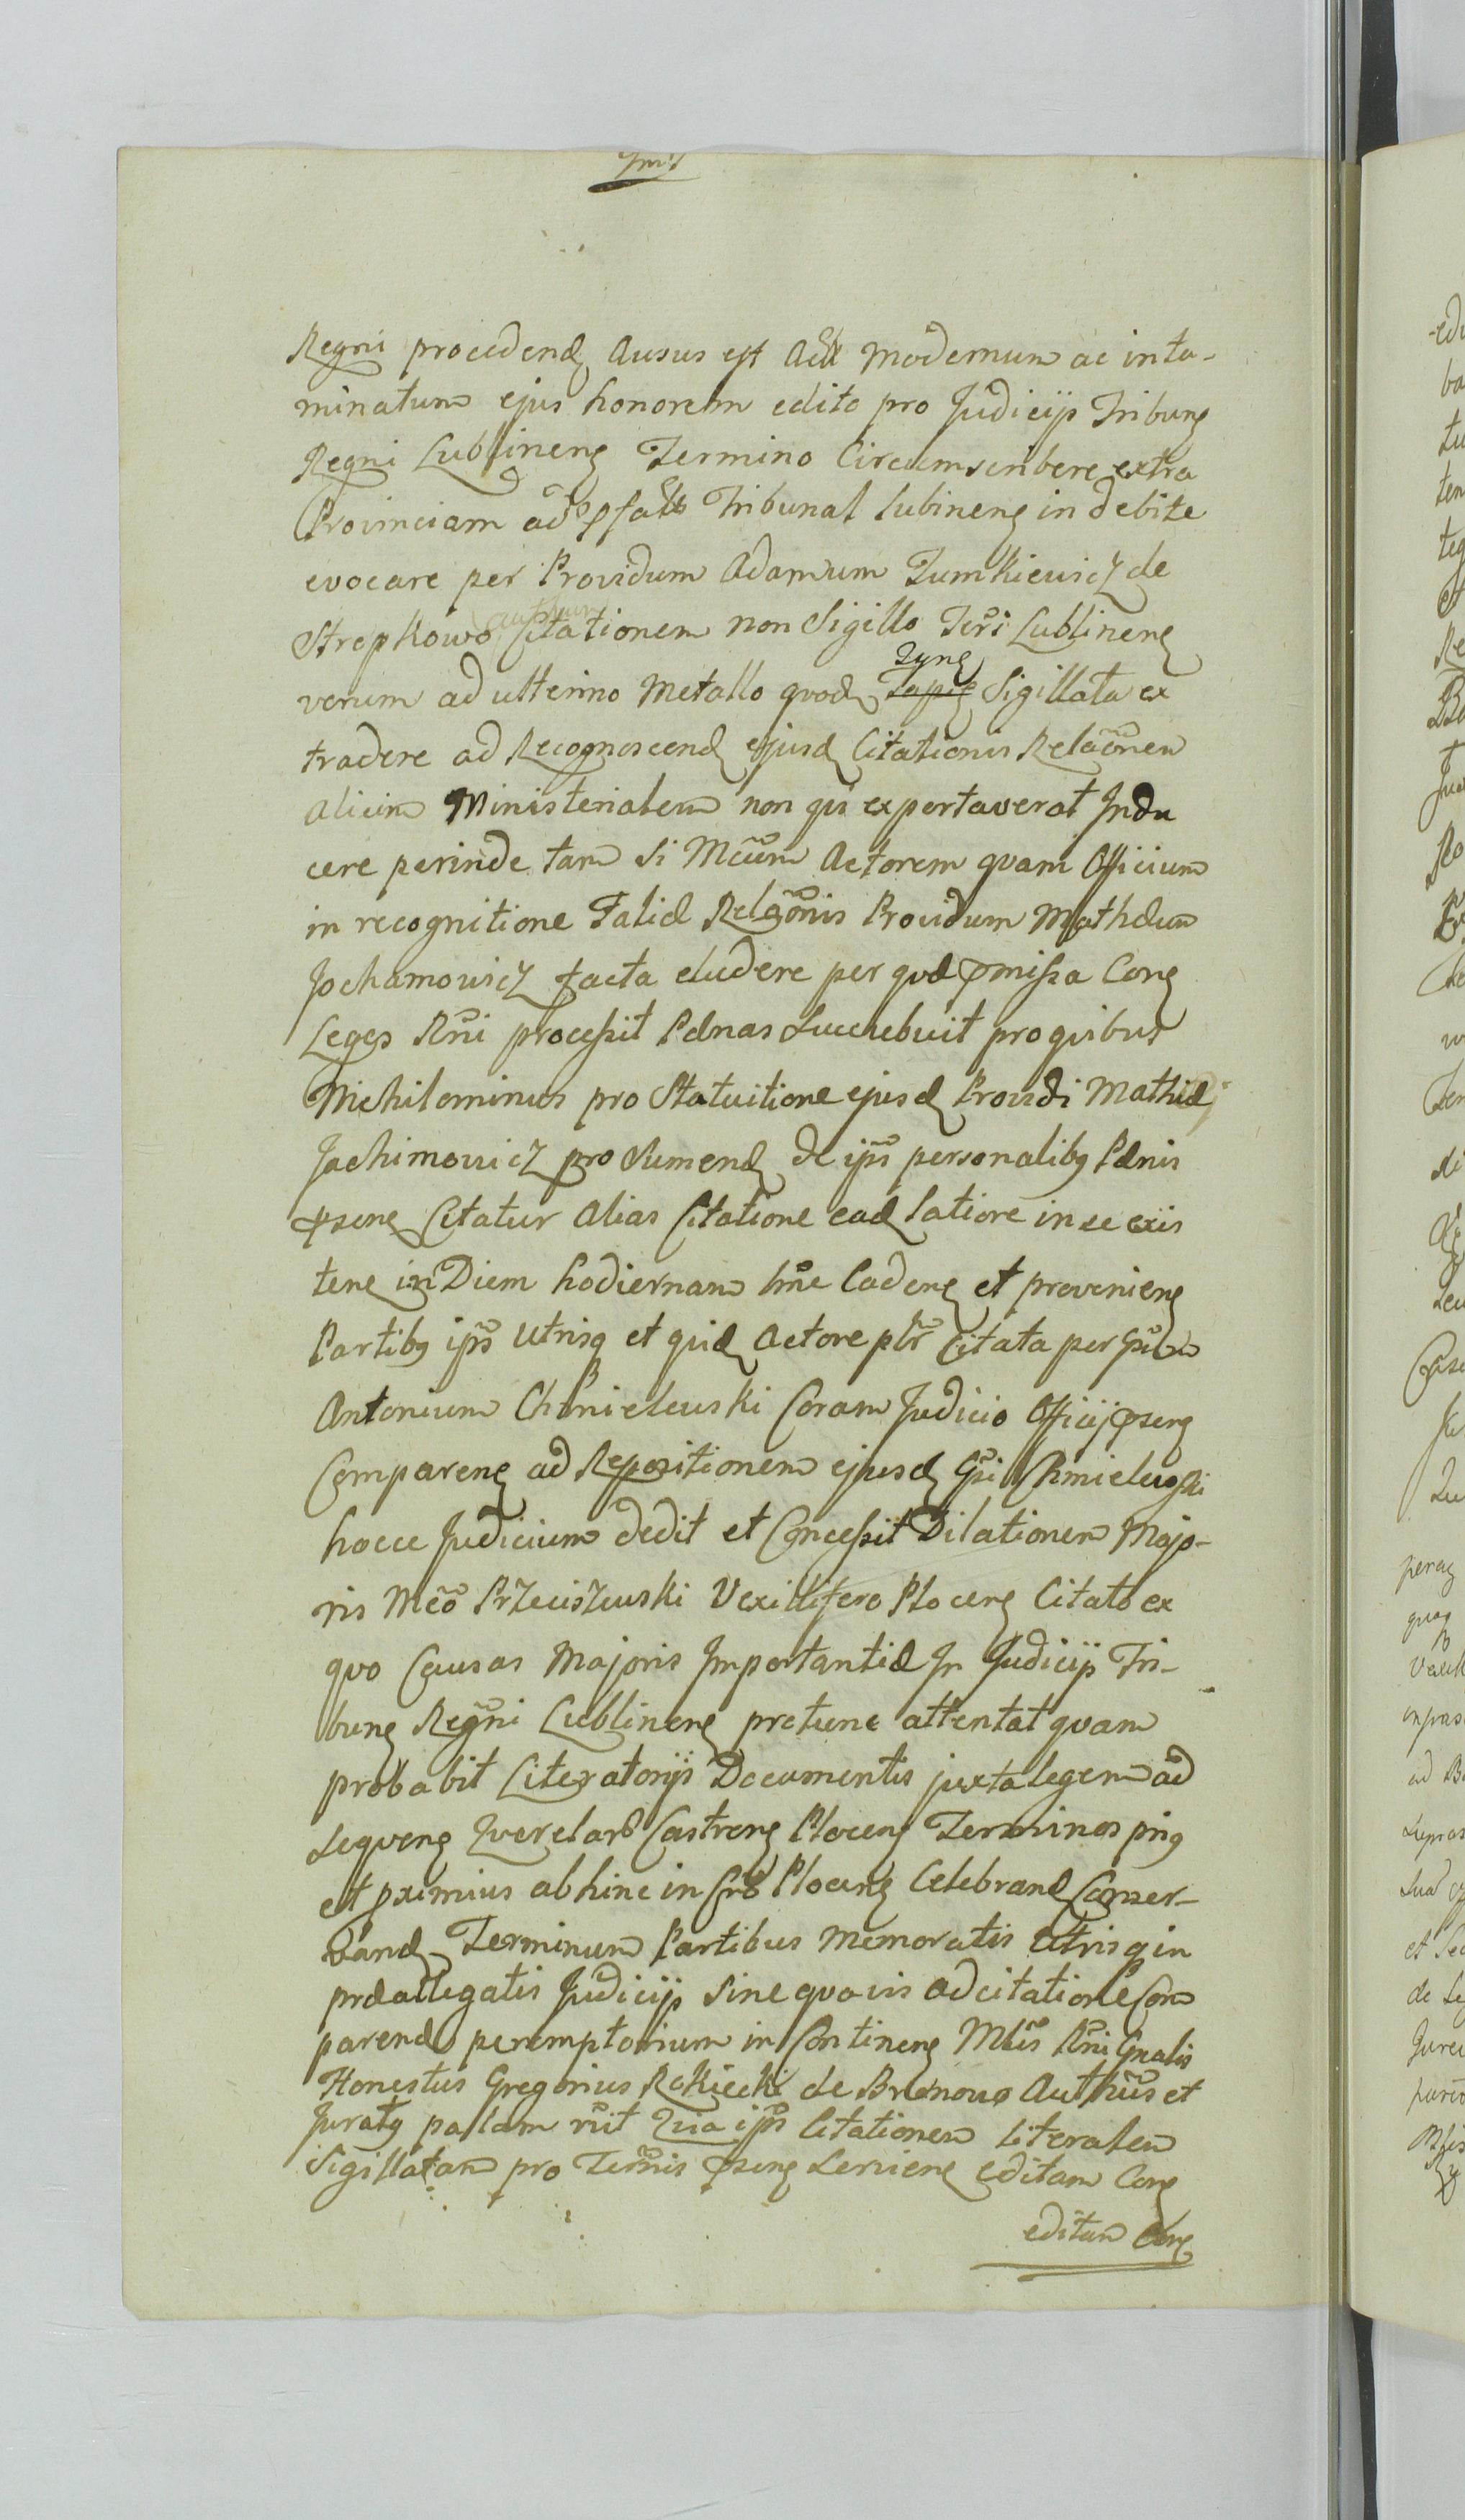 Regni procedend ausus est Actr modernum ac inta-
minatum ejus honorem edito pro Judicijs Tribung
Regni Lublineng Termino Circumscribere extra
Provinciam ad Tribunal lubineng indebite
evocare per Providum Adamum Tumkiewicz de
Strepkowo Citationem non Sigillo Lublineng
Zyng
verum adulterino Metallo quod Sigillata ex
tradere ad Recognoscend ejusd Citationis Relaonem
alium Ministerialem non qui exportaverat Indu
cere perinde tam si Mcum Actorem quam Officium
in recognitione Talid Relaonis Providum Mathdum
Jochamowicz facta eludere per qvd pmissa Cong
Leges Rni processit Pdnas Succubuit pro quibus
Nichilominus pro Statuitione ejusd Prouidi Mathid
Jachimowicz pro Sumend de ipso personalibg Pdnis
pseng Citatur alias Citatione ead latiore in se exis
teng in Diem hodiernam hne Cadeng et provenieng
Partibg ipis utrisq et quid Actore plr Citata per
Antonium Chmielewski Coram Judicio Officij pseng
Compareng ad Repositionem ejusd Gsi Chmielewski
hocce Judicium dedit et Concessit Dilationem Majo-
ris Mco Przeciszewski Vexillifero Ploceng Citato ex
quo Causas Majoris Importantid In Judicijs Tri-
bung Regni Lublineng protunc attentat quam
probabit Literatorijs Documentis juxta legem ad
sequeng Querelar Castreng Ploceng Terminos
et pximius abhinc in Cro Ploceng Celebrand Conser-
vand Terminum Partibus memoratis utrisq in
prdallegatis Judicijs Sine quovis adcitatione Com
parend peremptorium in Contineng Mlis Rni Gnalis
Honestus Gregorius Rokicki de Bronowo Authus et
Juratg palam rcit Quia ipse Citationem literalem
Sigillatam pro Termis pseng Servieng editam Cong
editam Cong